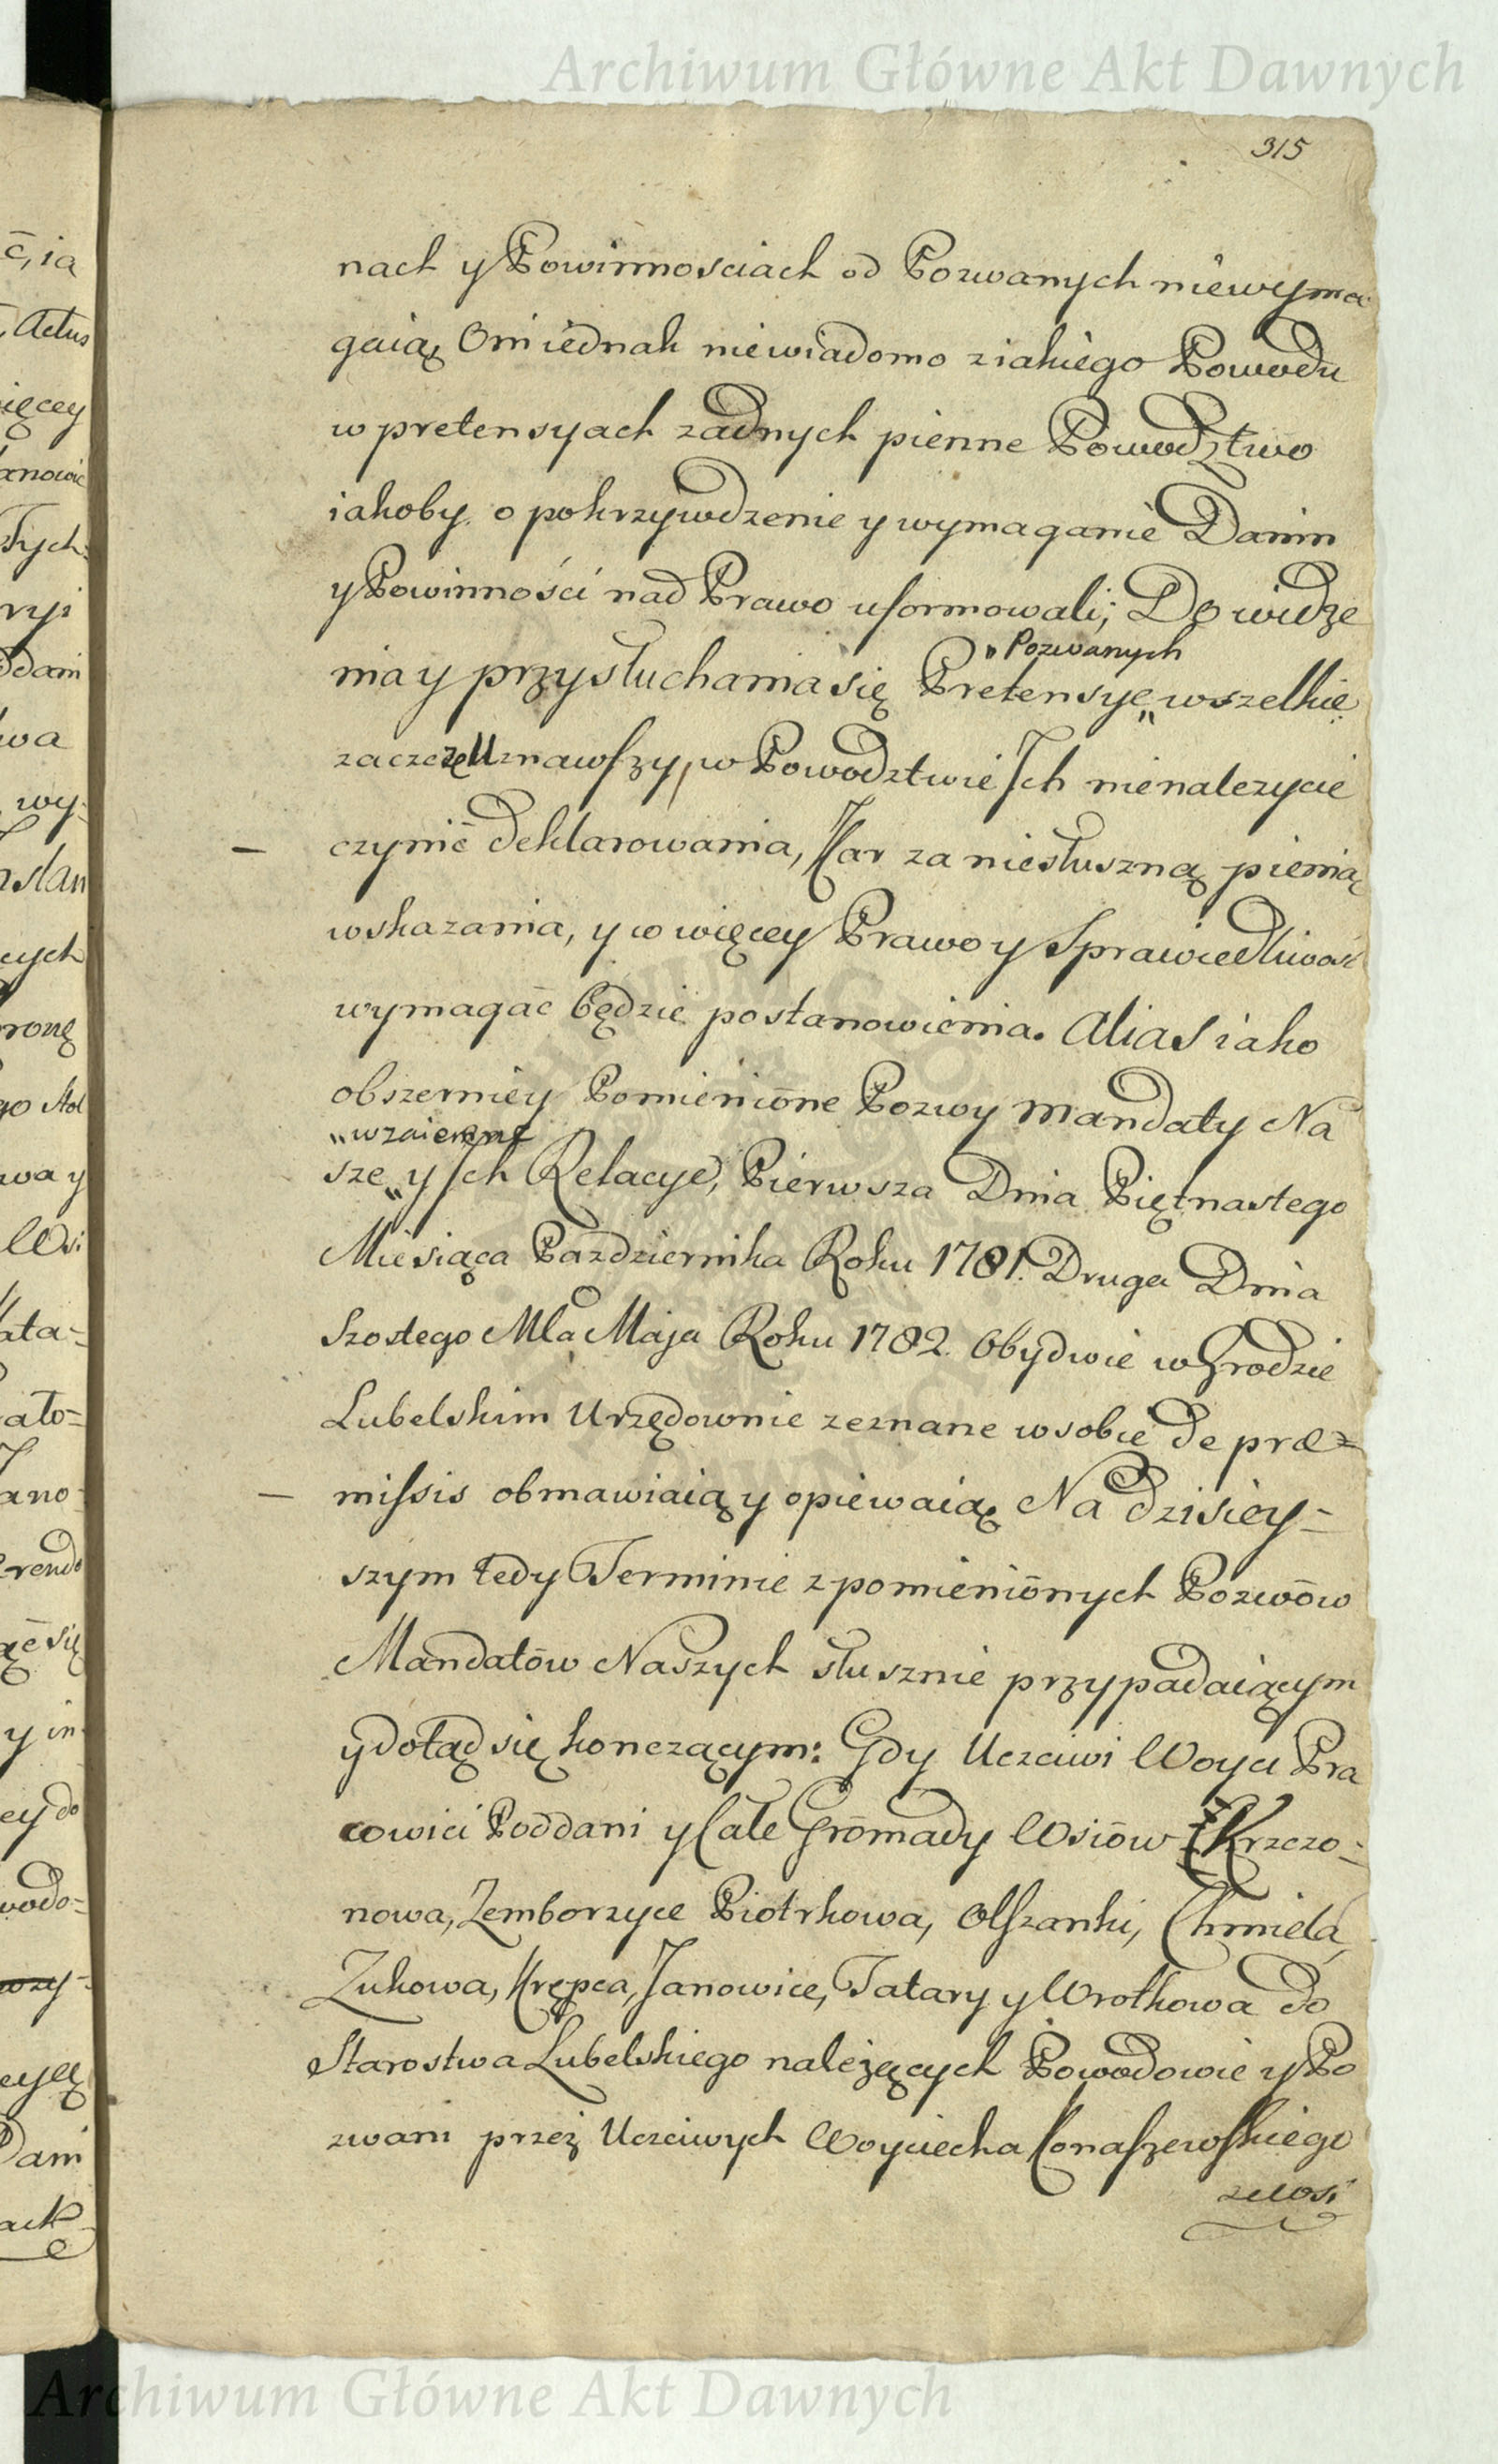 Archiwum Główne Akt Dawnych
315
nach y Powinnosciach od Pozwanych niewyma
gaią Oni iednak niewiadomo z iakiego Powodu
w pretensyach zadnych pienne Powodztwo
iakoby o pokrzywdzenie y wymaganie Danin
y Powinności nad Prawo uformowali; Do widze
nia y przysłuchania się Pretensye „ wszelkie
„ Pozwanych
zaczczę Uznawszy, w Powodztwie Ich nienalezycie
czynić deklarowania, Kar za niesłuszną pienią
wskazania, y co więcey Prawo y Sprawiedliwość
wymagać będzie postanowienia. Alias iako
obszerniey Pomienióne Pozwy Mandaty Na
„wzaiemne
sze „ y Ich Relacye, Pierwsza Dnia Piętnastego
Miesiąca Pazdziernika Roku 1781. Druga Dnia
Szostego Mca Maja Roku 1782. Obydwie w Grodzie
Lubelskim Urzędownie zeznane w sobie de præ=
missis obmawiaią y opiewaią Na dzisiey=
szym tedy Terminie z pomieniónych Pozwów
Mandatów Naszych słusznie przypadaiącym
y dotąd się konczącym: Gdy Uczciwi Woyci Pra
cowici Poddani y Całe Grómady Wsiów Krzczo=
nowa, Zemborzyce Piotrkowa, Olszanki, Chmiela,
Zukowa, Krępca, Janowice, Tatary y Wrotkowa do
Starostwa Lubelskiego należących Powodowie y Po
zwani przez Uczciwych Woyciecha Conaszewskiego
ze Wsi
Archiwum Główne Akt Dawnych